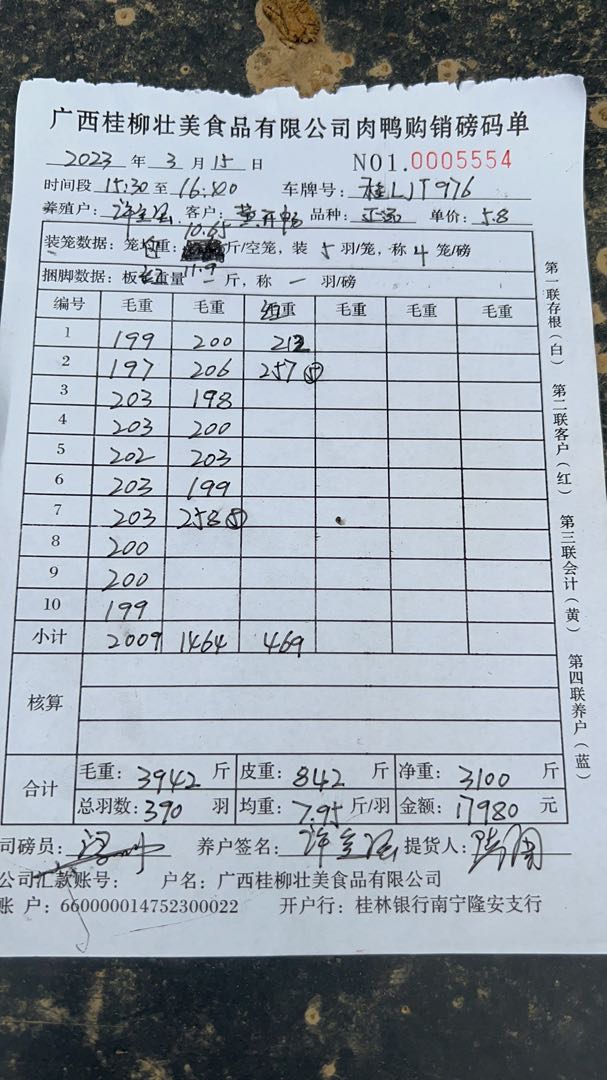 广西桂柳壮美食品有限公司肉鸭购销磅码单
2023 年 3 月 15 日 NO1.0005554
时间段 15:30 至 16:40 车牌号: 桂LJT976
养殖户: 许 客户: 黄开畅 品种: 单价: 5.8
10.65
装笼数据: 笼 重: 斤/空笼, 装 5 羽/笼, 称 4 笼/磅
11.9
捆脚数据: 板 重量 — 斤, 称 — 羽/磅
编号 毛重 毛重 重 毛重 毛重 毛重
1 199 200 212
2 197 206 257 ⑤
3 203 198
4 203 200
5 202 203
6 203 199
7 203 258 ⑤
8 200
9 200
10 199
小计 2009 1464 469
核算
合计 毛重: 3942 斤 皮重: 842 斤 净重: 3100 斤
总羽数: 390 羽 均重: 7.95 斤/羽 金额: 17980 元
司磅员: 养户签名: 许 提货人:
公司汇款账号: 户名: 广西桂柳壮美食品有限公司
账 户: 660000014752300022 开户行: 桂林银行南宁隆安支行
第一联存根(白) 第二联客户(红) 第三联会计(黄) 第四联养户(蓝)